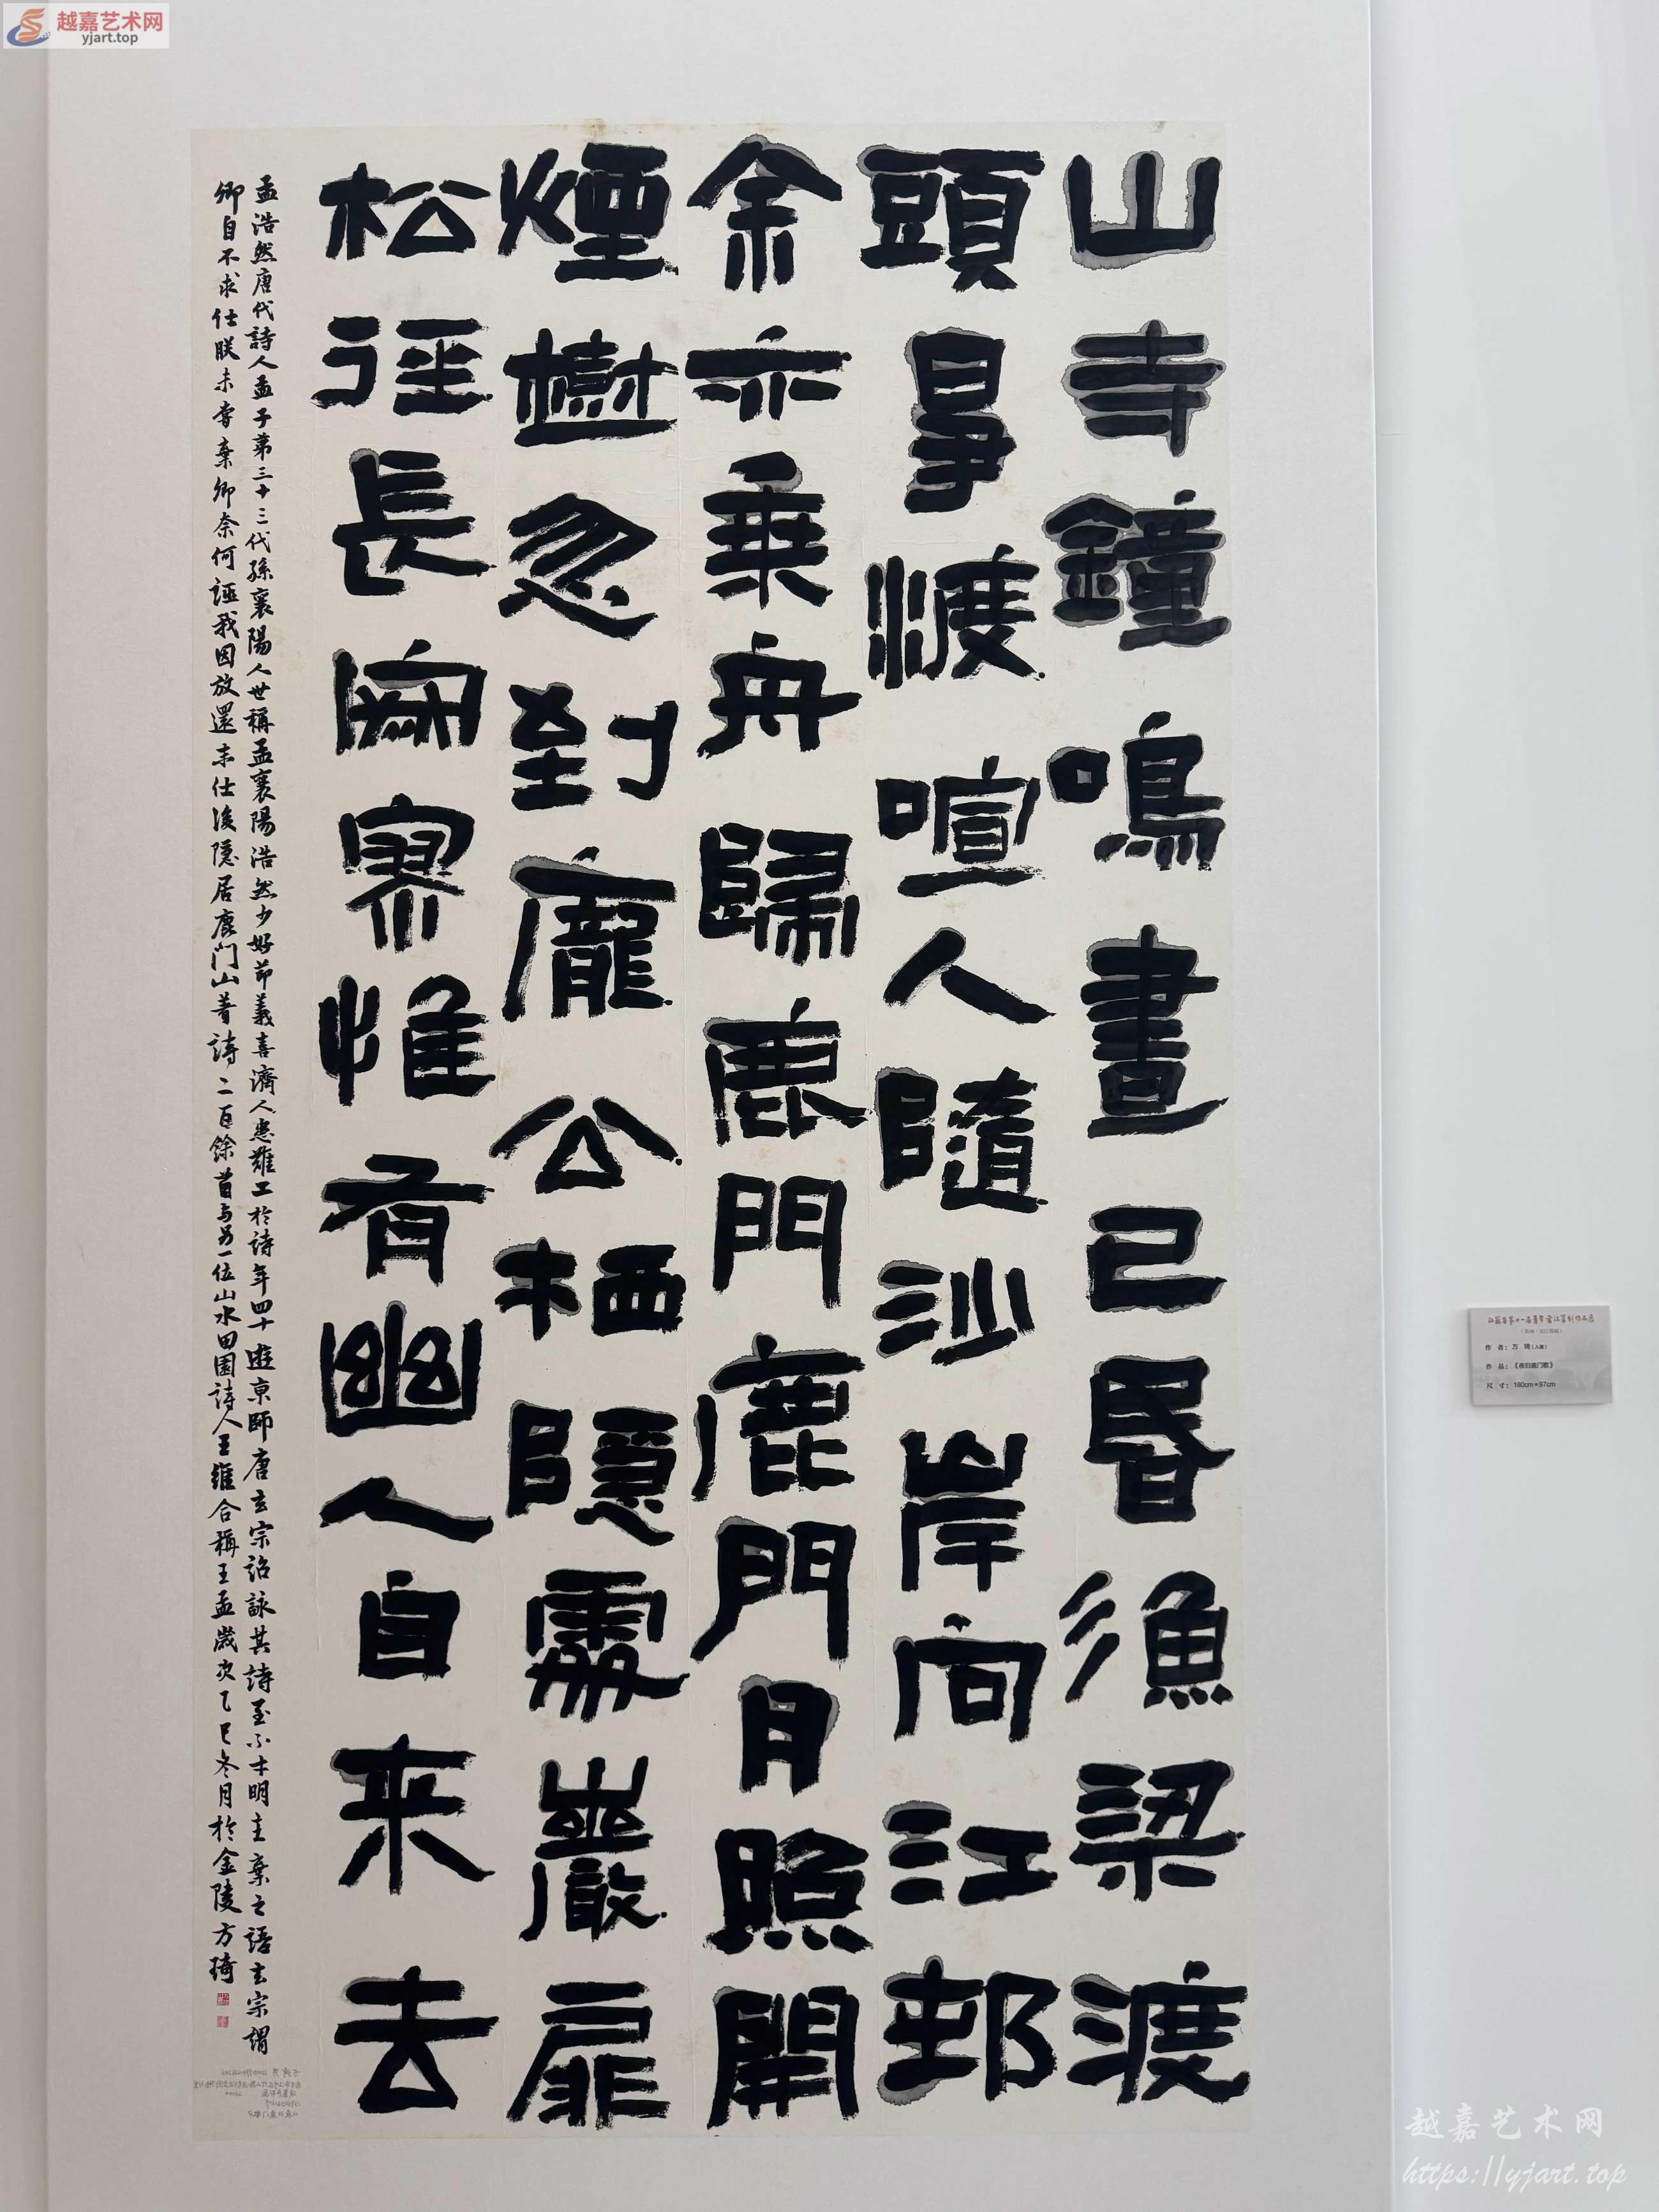 越嘉艺术网
yjart.top
山寺鐘鳴晝已昏漁梁渡
頭爭渡喧人隨沙岸向江邨
余亦乗舟歸鹿門鹿門月照開
煙樹忽到龐公栖隱處巖扉
松徑長寂寥惟有幽人自来去
孟浩然唐代詩人孟子第三十三代孫襄陽人世稱孟襄陽浩然少好節義喜濟人患難工於詩年四十遊京師唐玄宗詔詠其詩至不才明主棄之語玄宗謂
卿自不求仕朕未嘗棄卿奈何誣我因放還未仕後隱居鹿门山著詩二百餘首与另一位山水田園詩人王維合稱王孟歲次乙巳冬月於金陵方琦
江蘇省第十一届青年書法篆刻作品展
作 者：方 琦（入展）
作 品：《夜归鹿门歌》
尺 寸：180cm×97cm
越嘉艺术网
https://yjart.top